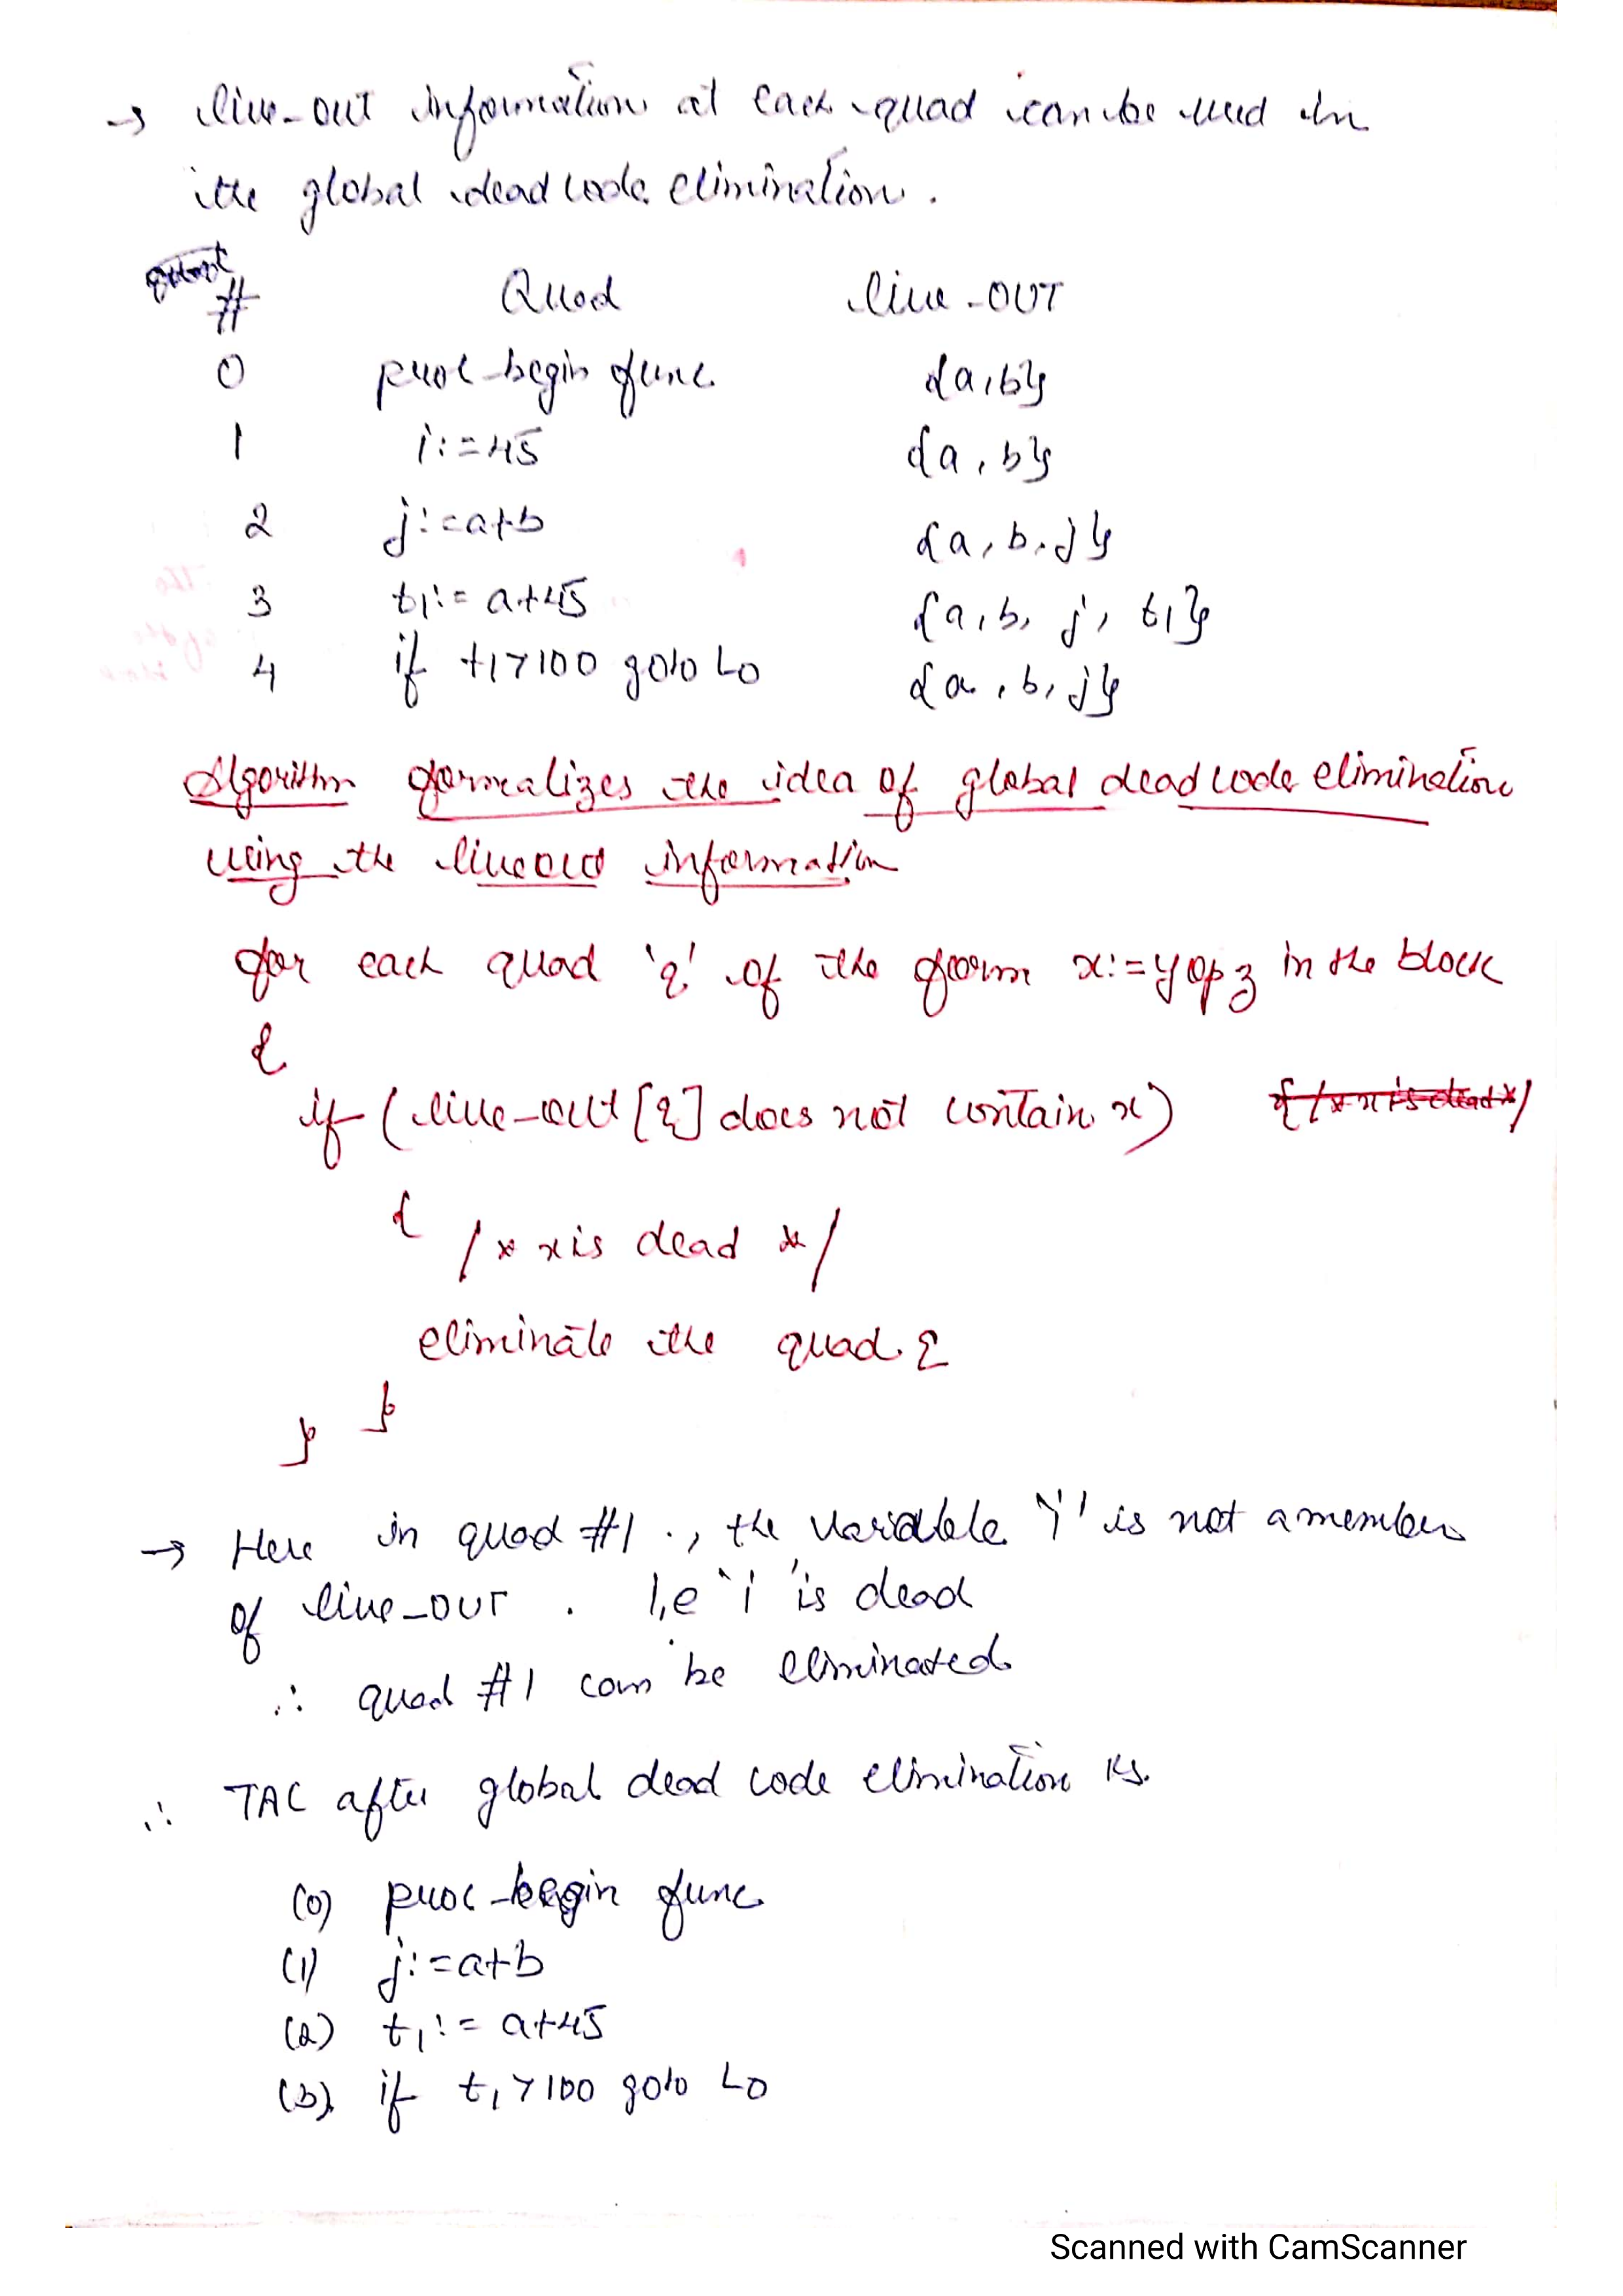 → live-OUT information at each quad can be used in
the global dead code elimination.
# Quad live-OUT
0 proc-begin func {a,b}
1 i:=45 {a,b}
2 j:=a+b {a,b,j}
3 t1:= a+45 {a,b, j, t1}
4 if t1>100 goto L0 {a,b,j}
Algorithm formalizes the idea of global dead code elimination
using the liveout information
for each quad 'q' of the form x:=y op z in the block
{
if (live-out[q] does not contain x) { /* x is dead */
{
/* x is dead */
eliminate the quad q
}
}
→ Here in quad #1, the variable 'i' is not a member
of live-OUT. i,e 'i' is dead
∴ quad #1 can be eliminated
∴ TAC after global dead code elimination is.
(0) proc-begin func
(1) j:=a+b
(2) t1:= a+45
(3) if t1>100 goto L0
Scanned with CamScanner